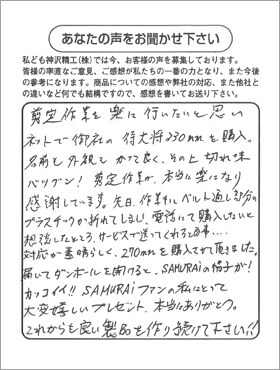 あなたの声をお聞かせ下さい
私ども神沢精工(株)では今、お客様の声を募集しております。
皆様の率直なご意見、ご感想が私たちの一番の力となり、また今後
の参考になります。商品についての感想や弊社の対応、また他社と
の違いなど何でも結構ですので、感想を書いてお送り下さい。
剪定作業を楽に行いたいと思い
ネットで御社の侍大将230mmを購入。
名前と外観とかって良く、その上切れ味
バツグン! 剪定作業が、本当に楽になり
感謝しています。先日、作業中にベルト通し部分の
プラスチックが折れてしまし、電話にて購入したいと
相談したところ、サービスで送ってくれると の事・・・。
対応が素晴らしく、270mmを購入させて頂きました。
届いてダンボールを開けると、SAMURAiの帽子が!
カッコイイ!! SAMURAiファンの私にとって
大変嬉しいプレゼント、本当にありがとう。
これからも良い製品を作り続けて下さい!!